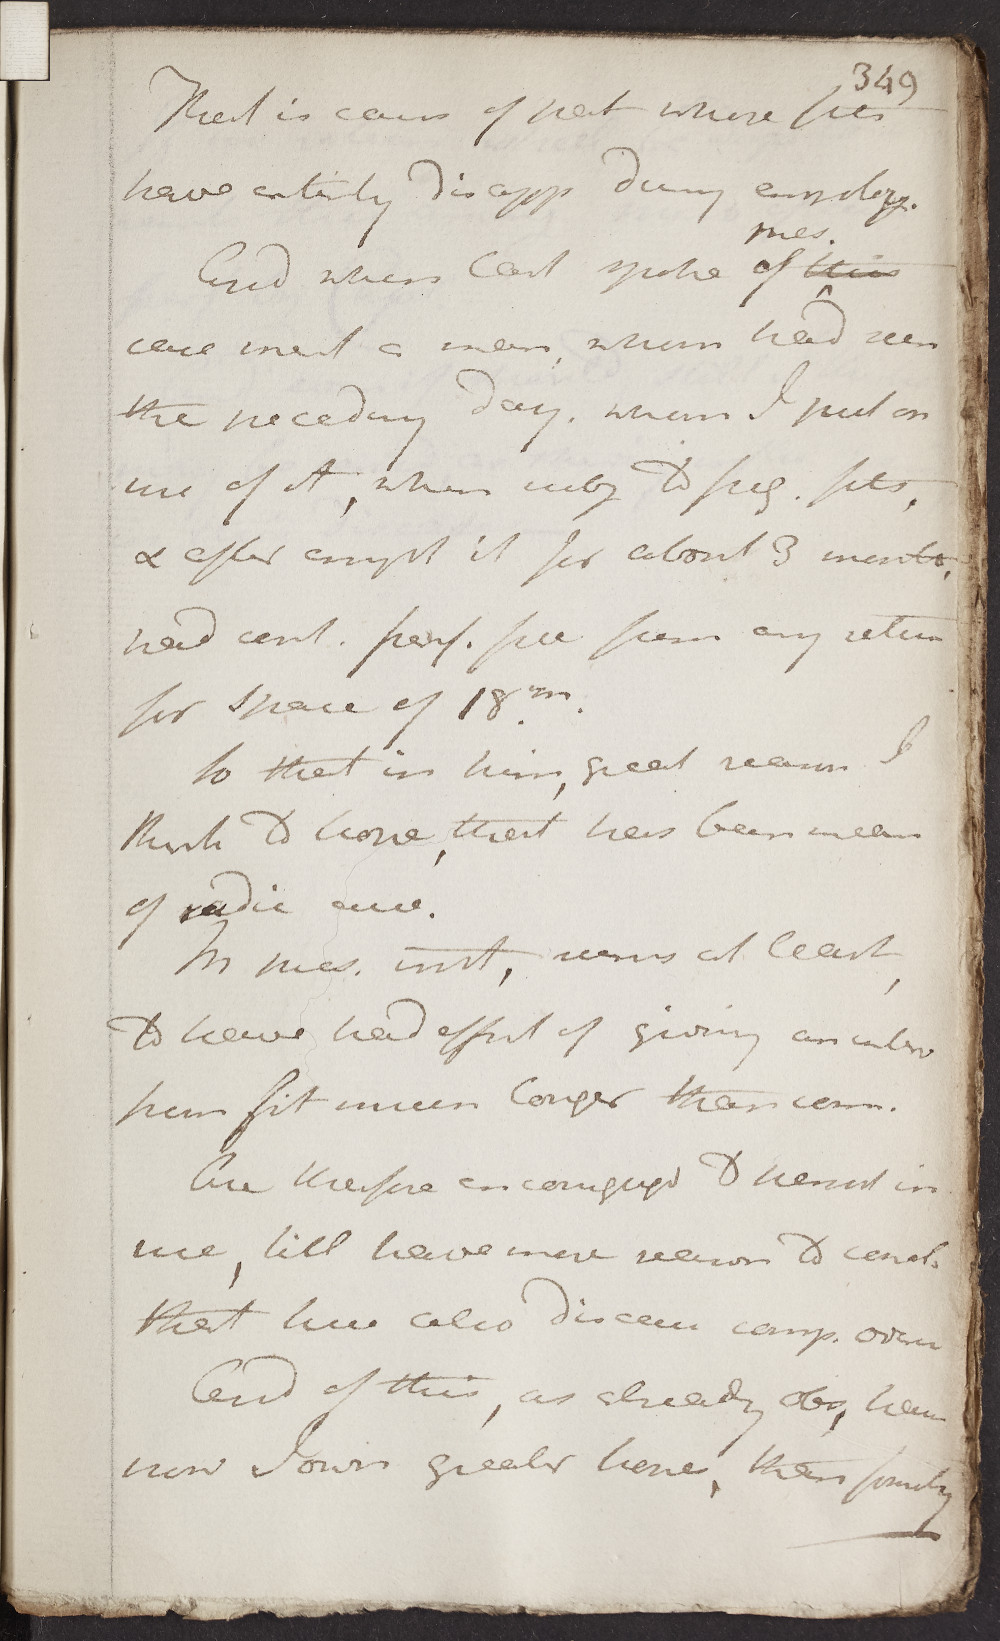 349
That is cases of pat where fits
have entirly disapp during employ.
And when last spoke of this pres.
case ment a man, whom had seen
the preceding day. whom I put on
use of it, when subj to freq. fits,
& after empl it for about 3 month,
had cont. perf. free from any return
for space of 18.m.
So that in him, great reason I
think to hope, that has been mean
of radic cure.
In pres. inst, seems at least,
to have had effect of giving an interv
from fit much longer than com.
Are therefore encouraged to persist in
use, till have more reason to concl.
that here also disease comp. overc
And of this, as already obs, have
now I own greater hopes, than formerly